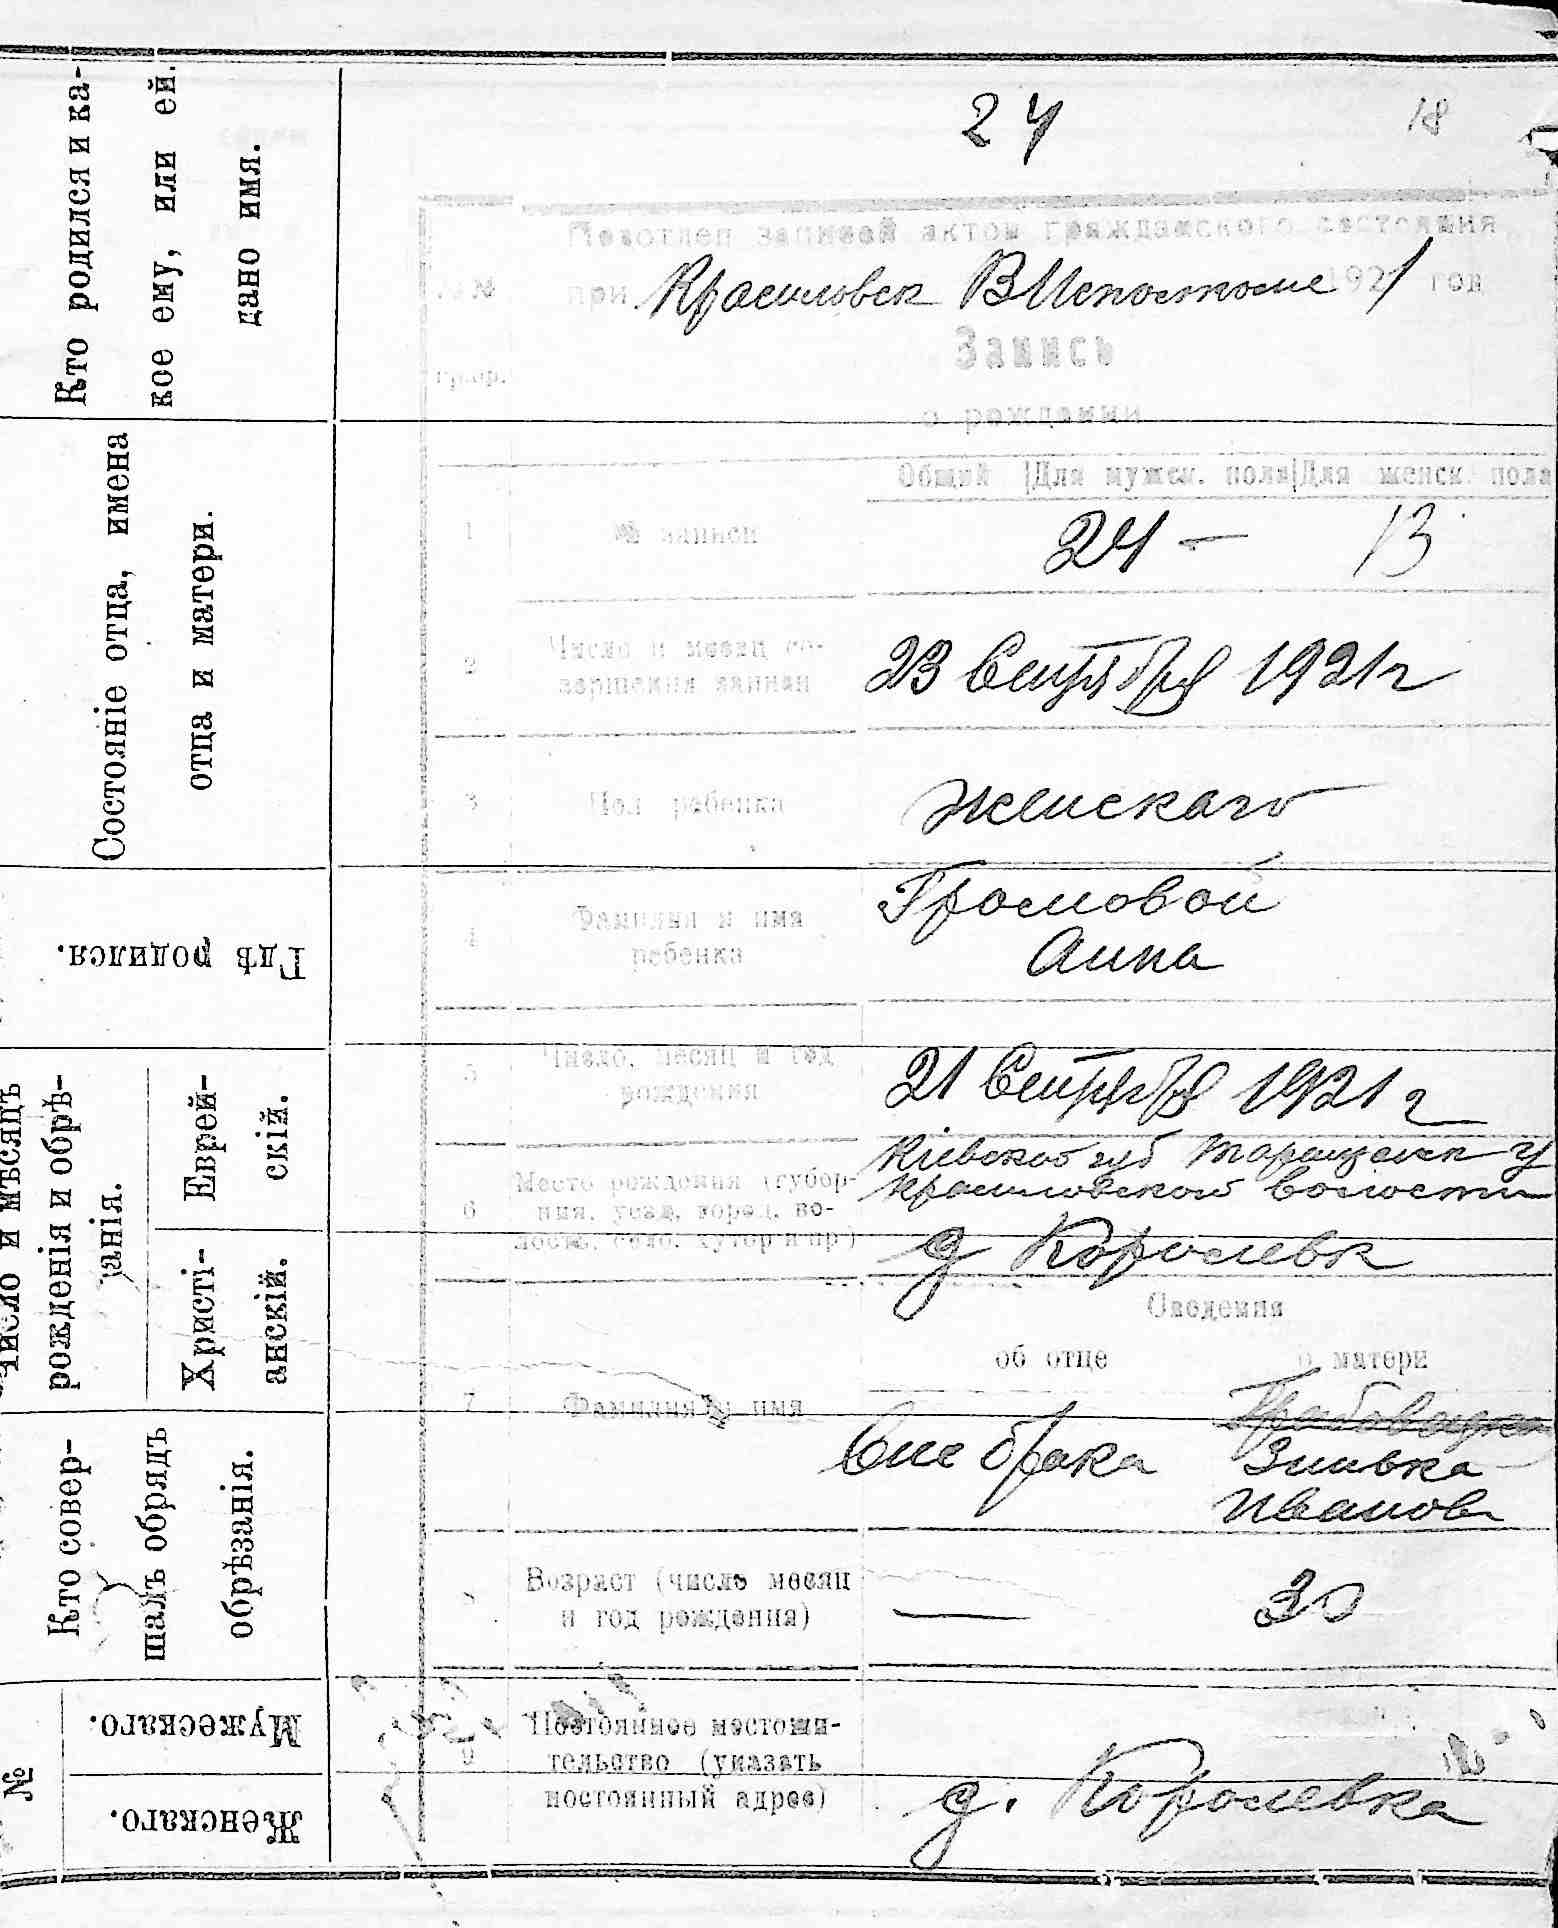 Кто родился и ка-
кое ему, или ей.
дано имя.
Состояніе отца, имена
отца и матери.
Гдѣ родился.
Число и мѣсяцъ
рожденія и обрѣ-
анія.
Еврей-
скій.
Христі-
анскій.
Кто совер-
шалъ обрядъ
обрѣзанія.
№
Мужескаго.
Женскаго.
24
18
записей актов гражданского состояния
№№
при Красиловск ВИсполкоме 1921 год
Запись
о рождении
Общий Для мужск. пола Для женск. пола
1 № записи 24 — 13
2 Число и месяц со-
вершения записи 23 Сентября 1921 г
3 Пол ребенка женскаго
4 Фамилия и имя
ребенка
Громовой
Анна
5 Число, месяц и год
рождения 21 Сентября 1921 г
6 Место рождения (губер-
ния, уезд, город, во-
лость, село, хутор и пр.)
Кіевской губ Таращанск у
Красиловской волости
д Королевк
Сведения
об отце о матери
7 Фамилия и имя
Вне брака
Зинька
Иванов
Возраст (число месяц
и год рождения) — 30
9 Постоянное местожи-
тельство (указать
постоянный адрес)
д. Королевка